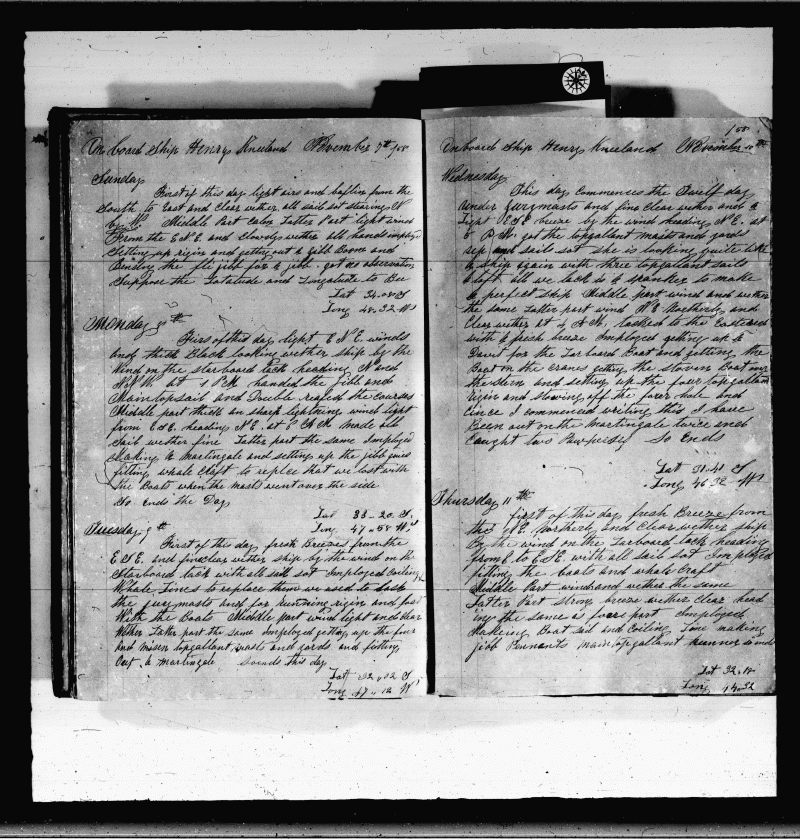 On board Ship Henry Kneeland November 7th /58
Sunday
First of this day light airs and baflin from the
South to East and Clear wether all sail sot stearing N
by W. Middle Part Calm Latter Part light wind
From the E N E and Clowdy wether all hands employed
Setting up rigin and getting out a Jibb Boom and
Bending the fli jibb for a jibb. got no observation
Suppose the Latatude and Longatude to Bee
Lat 34.08 S
Long 48.32 W
Monday 8th
Firs of this day light E N E. winds
and thick Black looking wether ship by the
wind on the starboard tack heading N and
N.N.W. at 1 P M handed the Jibb and
Maintopsail and Double reafed the courses
Middle part thick an sharp lightning wind light
from E S E. heading N E. at 8 A M. Made all
sail wether fine Latter part the same Imployed
Making a Martingale and setting up the jibb guies
fitting whale Craft to replce that we lost with
the Boats when the masts went over the side
So ends the Day
Lat 33-20 S.
Long 47.58 W
Tuesday 9th
First of this day fresh Breezes from the
E S E. and fine clear wether ship by the wind on the
Starboard tack with all sail sot Imployed Coiling
Whale Lines to replace them we used to
the jury masts and for Running rigin and fast
With the Boats Middle part wind light and clear
Wether Latter part the same Imployed getting up the four
and Misen topgallant masts and yards and fitting
Out a Martingale So ends this day
Lat 32.. 12 S
Long 47.. 12 W
158
On board Ship Henry Kneeland November 10th
Wednesday
This day commences the Twelf day
under jurymasts and fine Clear wether and a
Light E S E breeze by the wind heading N.E. at
6 P.M. got the topgallant masts and yards
up and sails sot she is looking quite like
a ship again with three topgallant sails
aloft all we lack is a spanker to make
a perfect ship Middle part wind and wether
the same Latter part wind N E Northerly and
Clear wether at 4 A M. tacked to the Eastward
with a fresh breeze Imployed geting up a
Davit for the Larboard Boat and getting the
Boat on the cranes geting the stoven Boat over
the stern and setting up the four topgallan
rigin and stowing off the four hole and
Cince I commenced writing this I have
Been out on the Martingale twice and
Caught two Pawpoises So Ends
Lat 31.41 S
Long 46 32 W
Thursday 11th
first of this day fresh Breeze from
the N.E. Northerly and Clear wether ship
By the wind on the Larboard tack heading
from E to E S E with all sail sot Imployed
fitting the boats and whale Craft
Middle Part wind and wether the same
Latter Part strong breeze wether clear head
ing the same as fore part Imployed
Makeing Boat sail and Coiling Line making
jib Pennants main topgallant runner so ends
Lat 32.18
Long